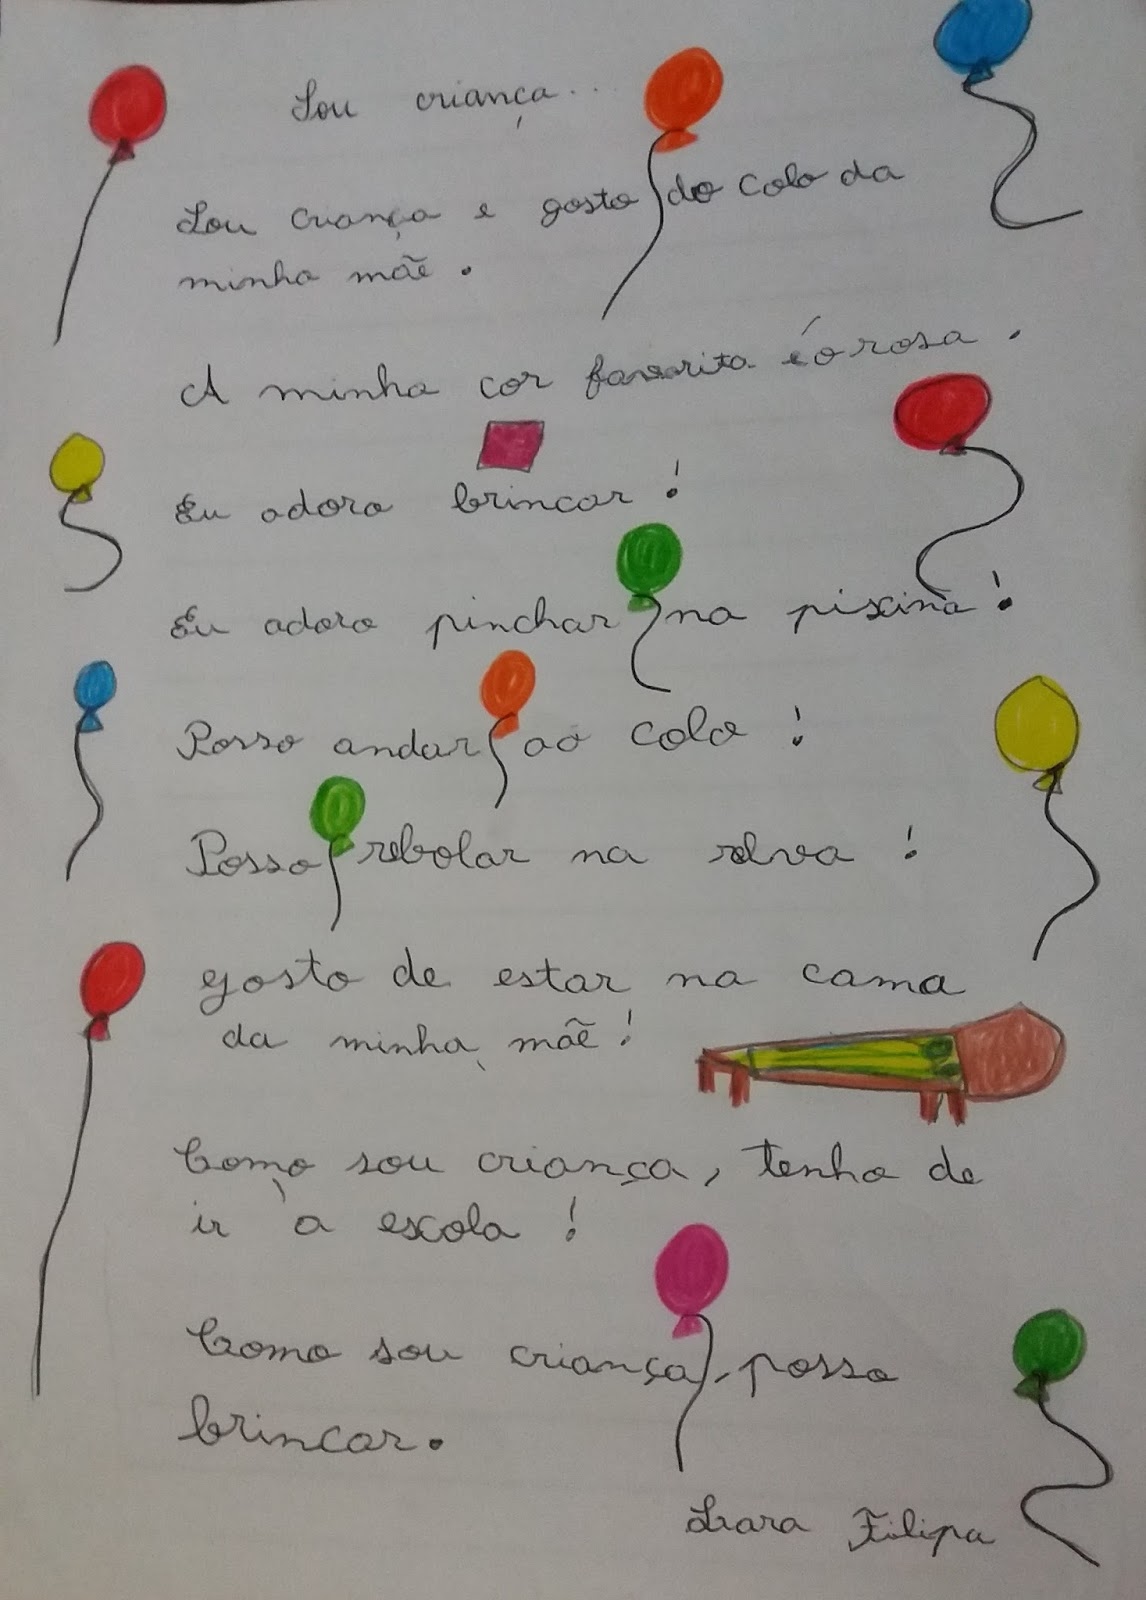 Sou criança...
Sou criança e gosto do colo da
minha mãe.
A minha cor favorita é o rosa.
Eu adoro brincar!
Eu adoro pinchar na piscina!
Posso andar ao colo!
Posso rebolar na relva!
Gosto de estar na cama
da minha mãe!
Como sou criança, tenho de
ir à escola!
Como sou criança, posso
brincar.
Lara Filipa